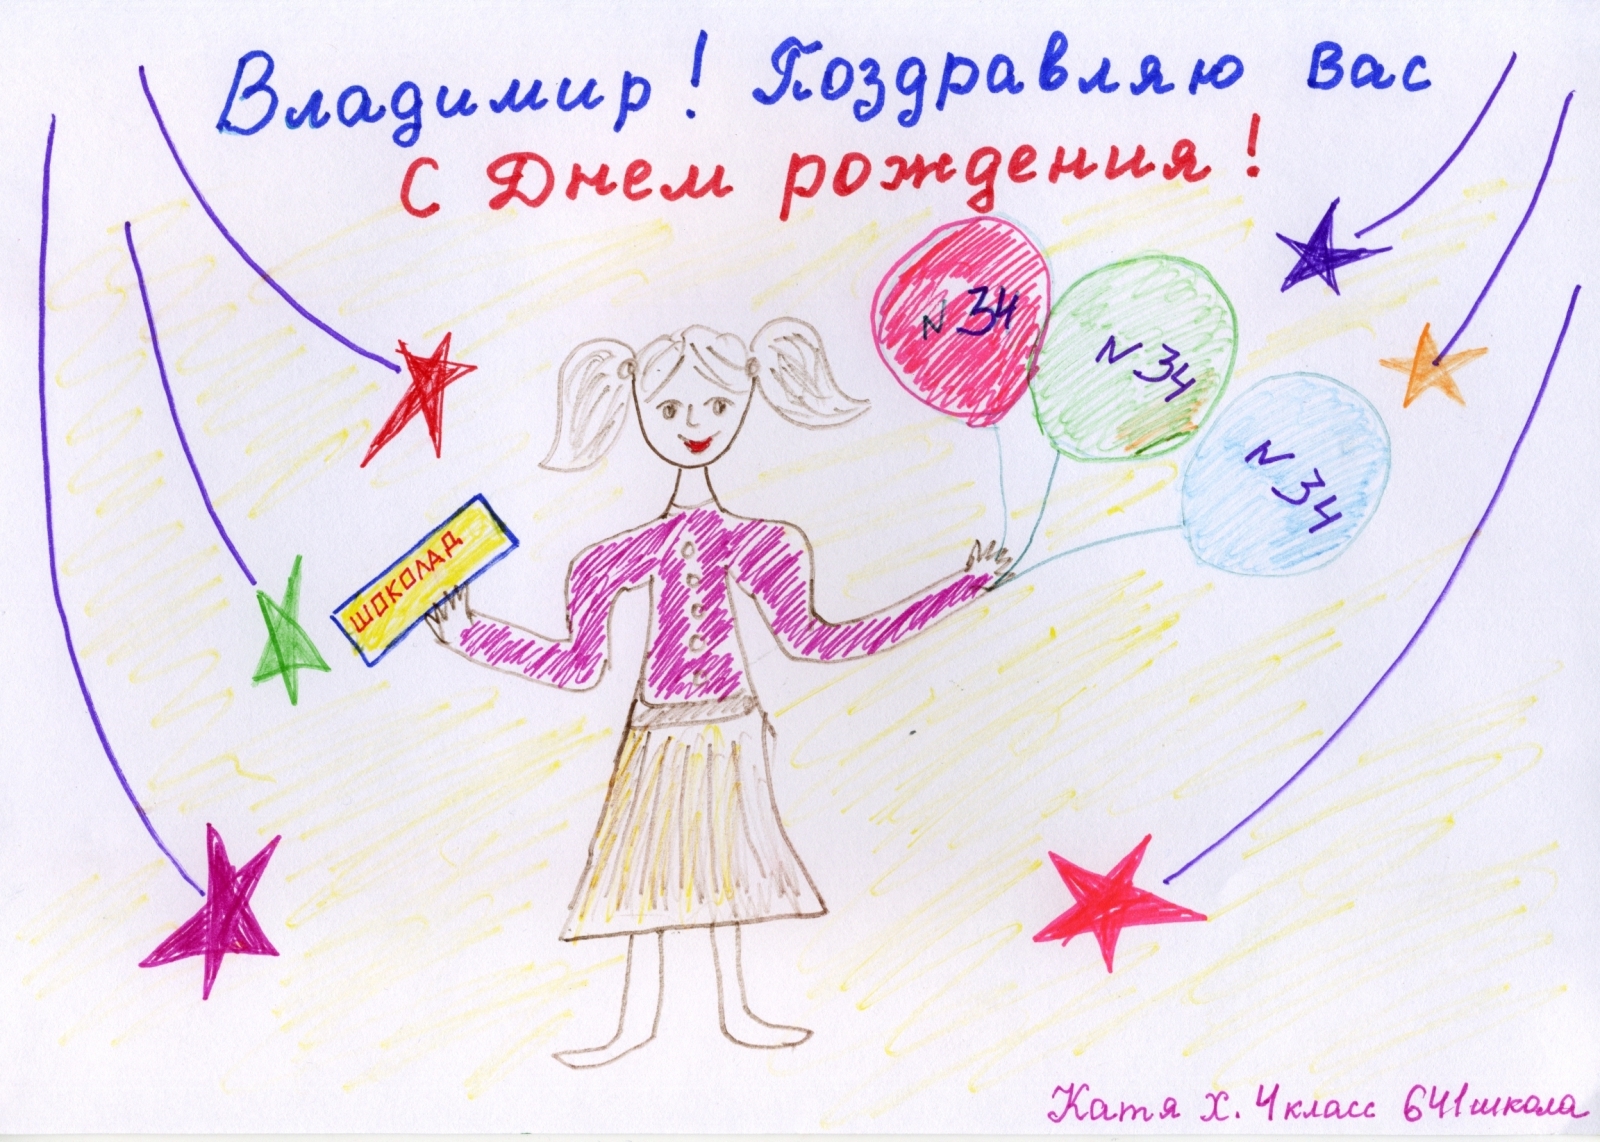 Владимир! Поздравляю вас
с Днем рождения!
N 34
N 34
N 34
ШОКОЛАД
Катя Х. 4 класс 641 школа